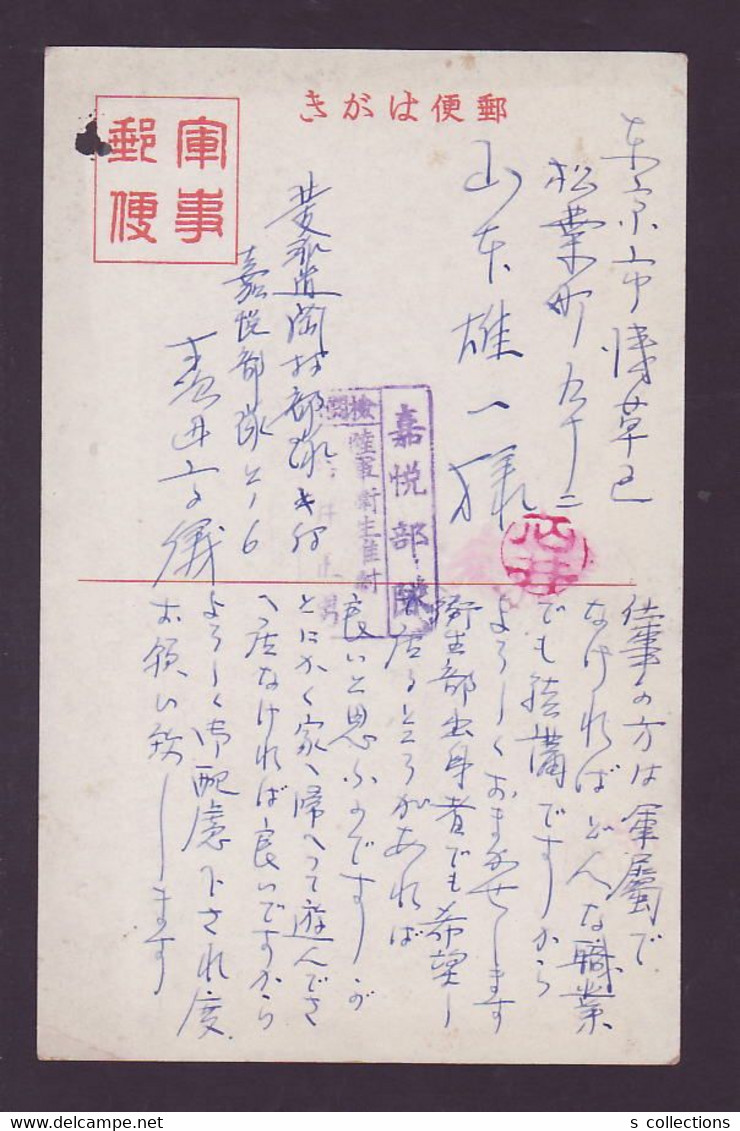 郵便はがき
軍事郵便
東京市浅草区
松葉町九十二
山本雄一様
岡村部隊気付
嘉悦部隊
嘉悦部隊
検閲
陸軍衛生准尉
仕事の方は軍属で
なければどんな職業
でも結構ですから
よろしくおまかせします
衛生部出身者でも希望し
居るところがあれば
良いと思ふのですが
とにかく家へ帰へつて遊んでさ
へ居なければ良いですから
よろしく御配慮下され度
お願い致します
s collections